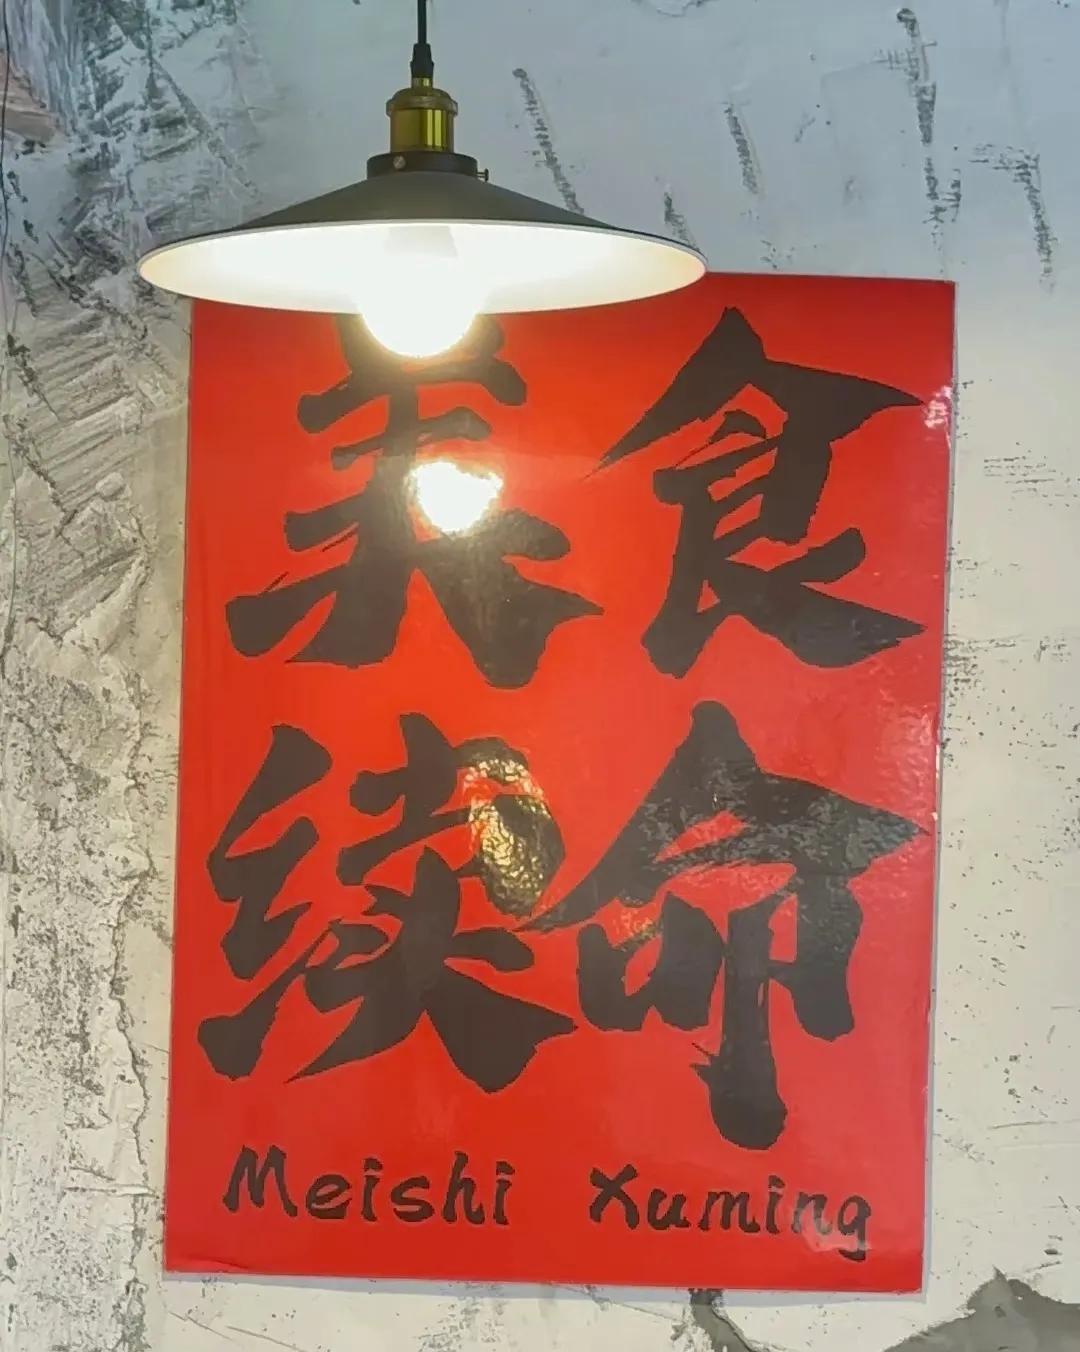 美食
续命
Meishi Xuming